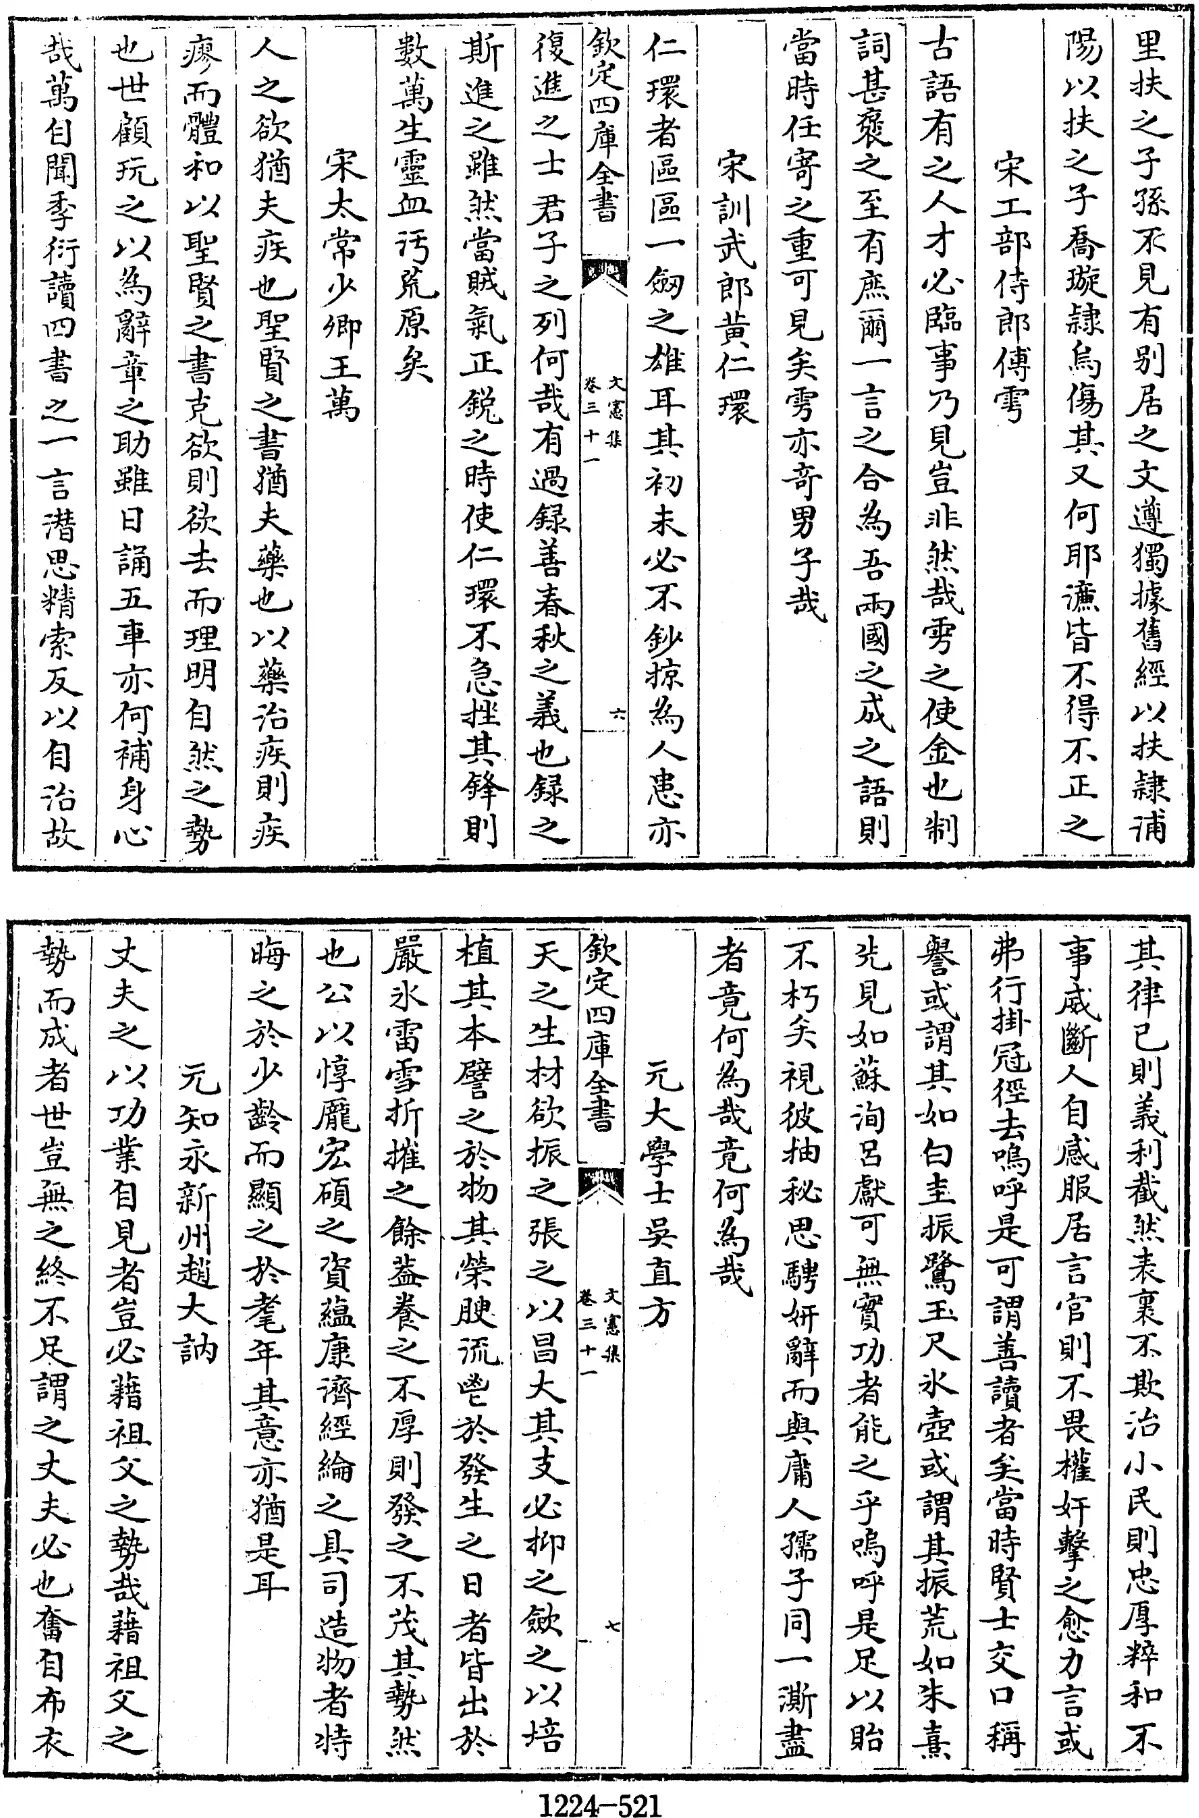 里扶之子孫不見有别居之文遵獨據舊經以扶隷浦
陽以扶之子喬璇隷烏傷其又何耶濂皆不得不正之
宋工部侍郎傅雱
古語有之人才必臨事乃見豈非然哉雱之使金也制
詞甚褒之至有庶爾一言之合為吾兩國之成之語則
當時任寄之重可見矣雱亦竒男子哉
宋訓武郎黄仁環
仁環者區區一劔之雄耳其初未必不鈔掠為人患亦
欽定四庫全書
文憲集
卷三十一
六
復進之士君子之列何哉有過録善春秋之義也録之
斯進之雖然當賊氣正鋭之時使仁環不急挫其鋒則
數萬生靈血汚荒原矣
宋太常少卿王萬
人之欲猶夫疾也聖賢之書猶夫藥也以藥治疾則疾
瘳而體和以聖賢之書克欲則欲去而理明自然之勢
也世顧玩之以為辭章之助雖日誦五車亦何補身心
哉萬自聞季衍讀四書之一言潛思精索反以自治故
其律已則義利截然表裏不欺治小民則忠厚粹和不
事威斷人自感服居言官則不畏權奸擊之愈力言或
弗行掛冠徑去嗚呼是可謂善讀者矣當時賢士交口稱
譽或謂其如白圭振鷺玉尺氷壺或謂其振荒如朱熹
先見如蘇洵吕獻可無實功者能之乎嗚呼是足以貽
不朽矣視彼抽秘思騁妍辭而與庸人孺子同一澌盡
者竟何為哉竟何為哉
元大學士吳直方
天之生材欲振之張之以昌大其支必抑之歛之以培
欽定四庫全書
文憲集
卷三十一
七
植其本譬之於物其榮腴流鬯於發生之日者皆出於
嚴氷雷雪折摧之餘葢養之不厚則發之不茂其勢然
也公以惇龎宏碩之資蘊康濟經綸之具司造物者特
晦之於少齡而顯之於耄年其意亦猶是耳
元知永新州趙大訥
丈夫之以功業自見者豈必藉祖父之勢哉藉祖父之
勢而成者世豈無之終不足謂之丈夫必也奮自布衣
1224-521